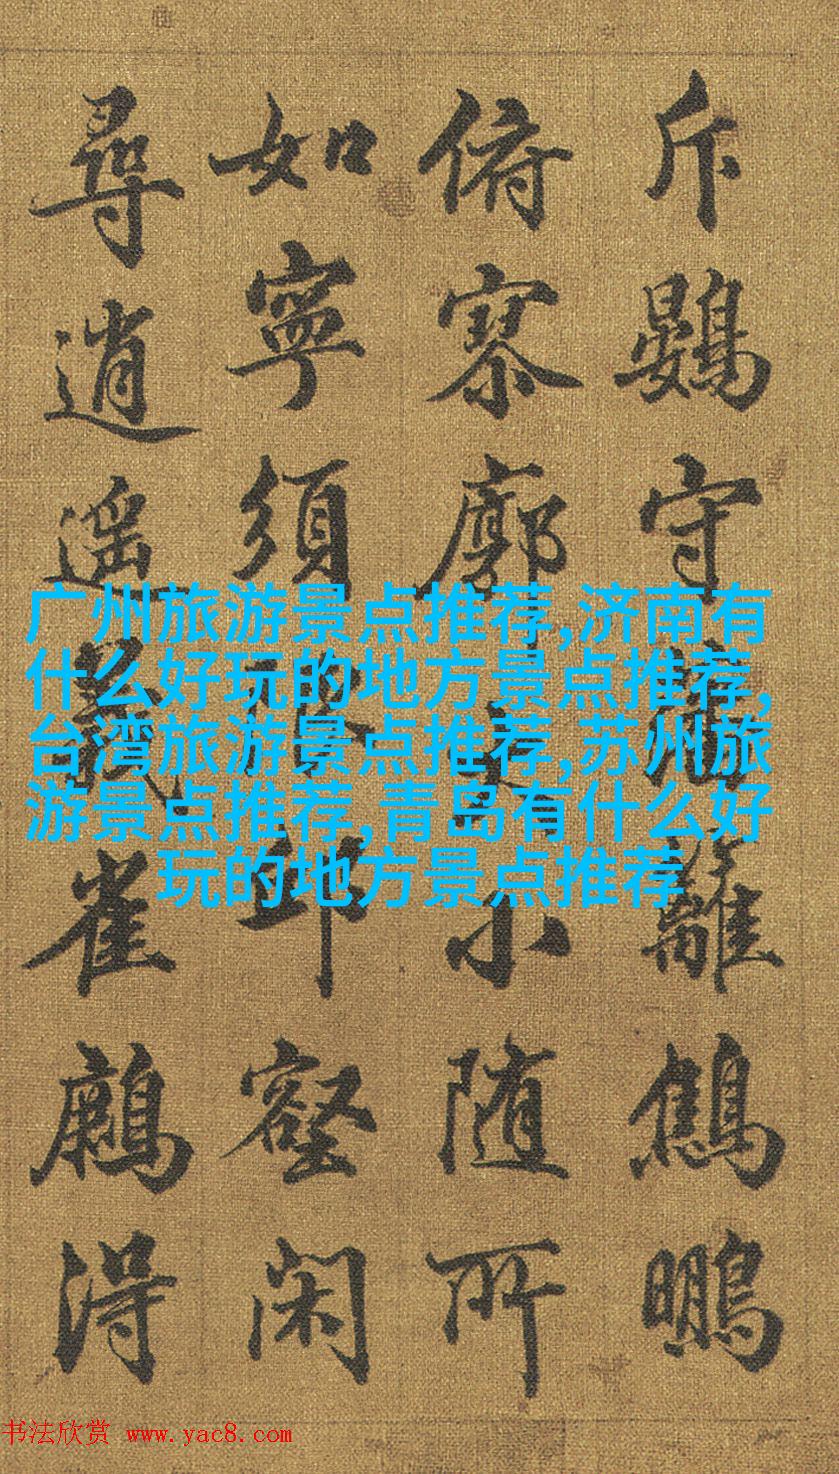 斥鷃守籬鷦鵬
俯寥廓大小随所
如寧須邱壑閑
尋逍遥雀得
广州旅游景点推荐,济南有
什么好玩的地方景点推荐,
台湾旅游景点推荐,苏州旅
游景点推荐,青岛有什么好
玩的地方景点推荐
书法欣赏 www.yac8.com